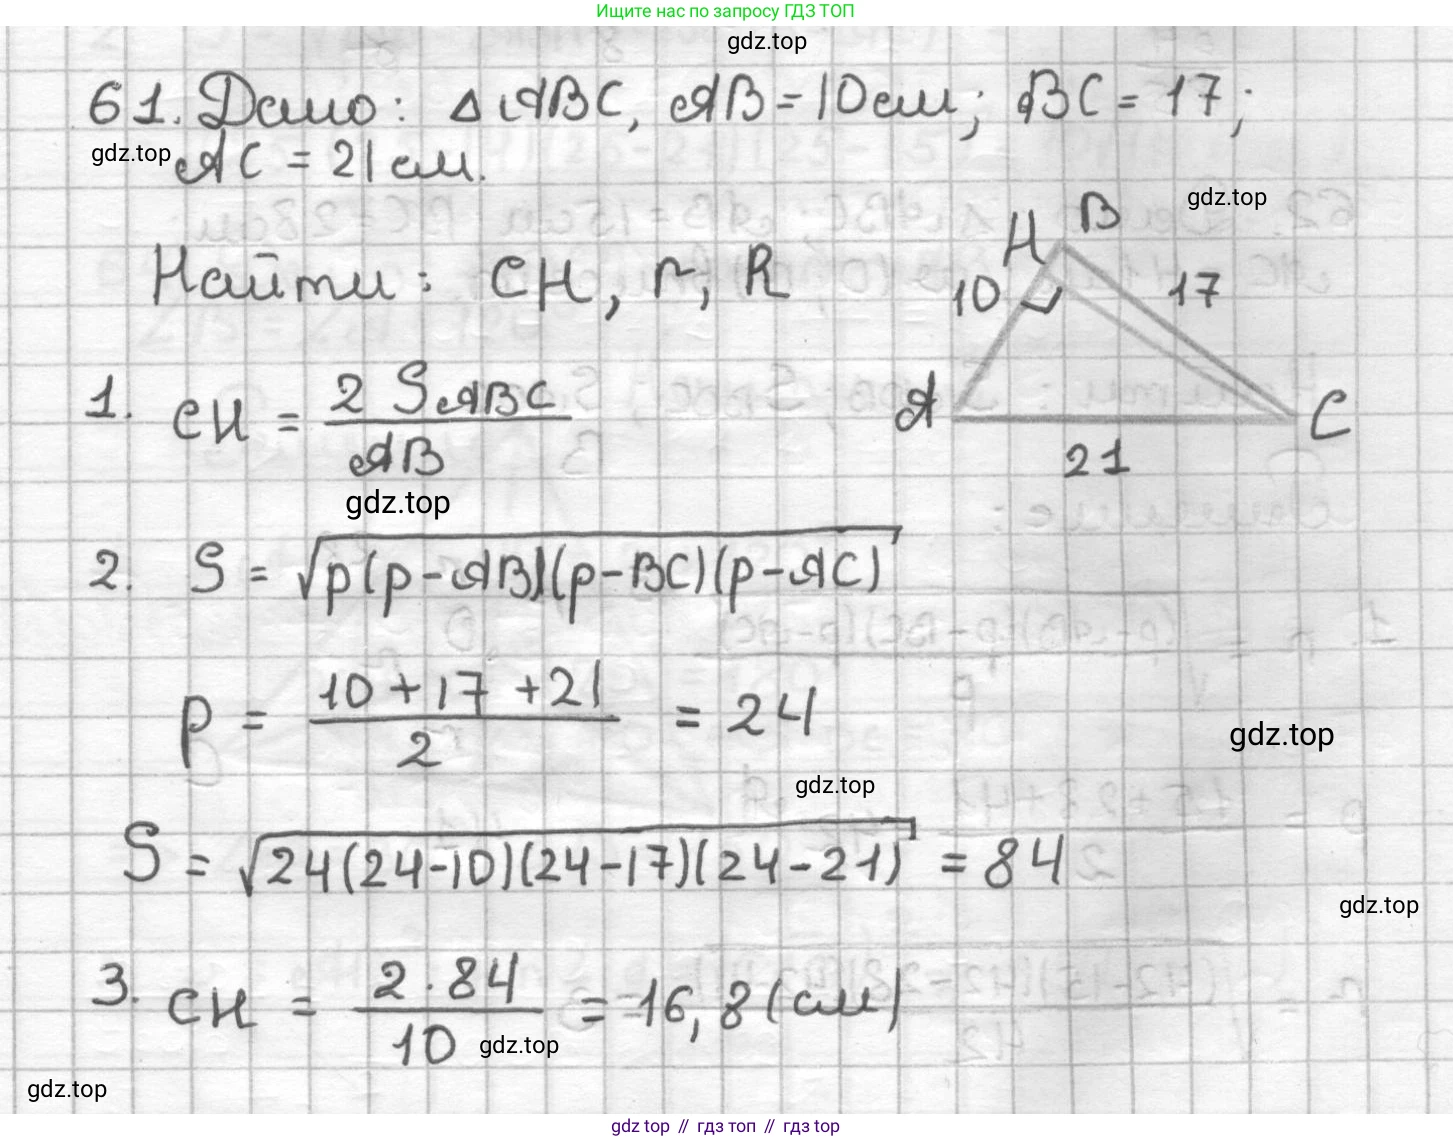 Ищите нас по запросу ГДЗ ТОП
gdz.top
61. Дано: △ABC, AB = 10 см; BC = 17;
gdz.top
AC = 21 см.
gdz.top
Найти: CH, r, R
H B
10 17
A C
21
1. CH = 2 S ABC / AB
gdz.top
2. S = √p(p-AB)(p-BC)(p-AC)
p = 10 + 17 + 21 / 2 = 24
gdz.top
gdz.top
S = √24(24-10)(24-17)(24-21) = 84
gdz.top
3. CH = 2 · 84 / 10 = 16,8 (см)
gdz.top
gdz.top
gdz top // гдз топ // гдз top